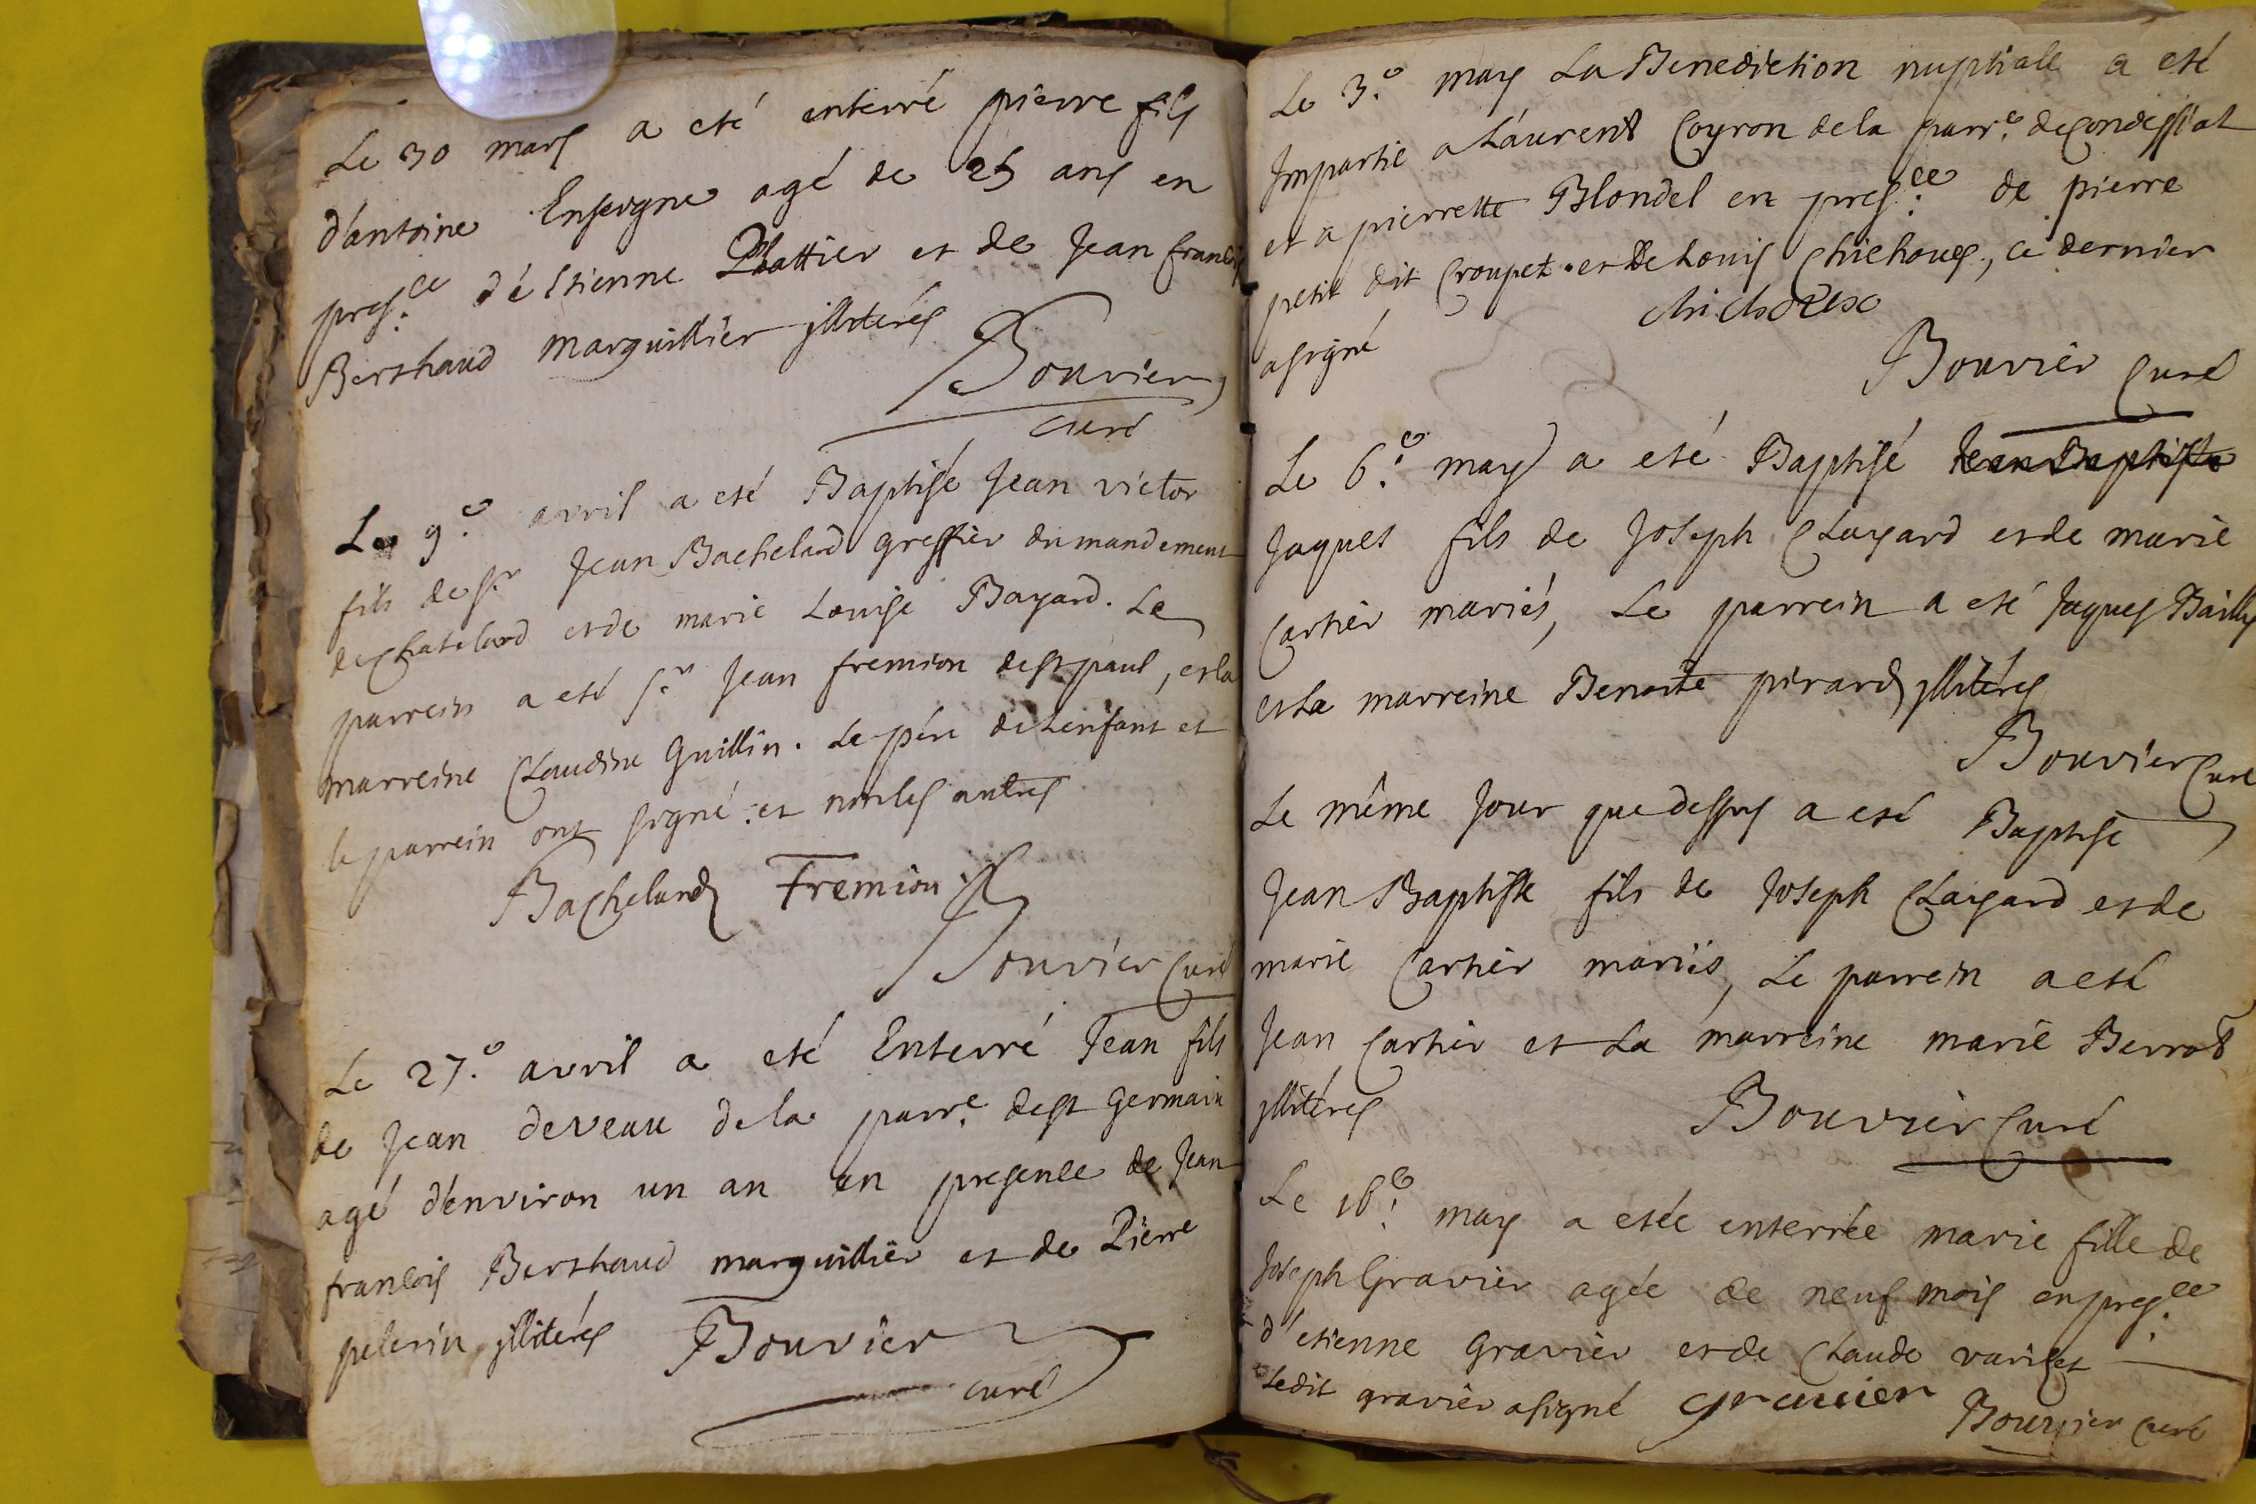 Le 30 mars a eté enterré pierre fils
d'antoine Enseigne agé de 25 ans en
pres.ce d'éstienne Plattier et de Jean francois
Berthaud marguillier jllitérés
Bouvier
curé
Le 9.e avril a eté Baptisé Jean victor
fils de sr Jean Bachelard greffier du mandement
de Chatelard et de marie Louise Bayard. Le
parrein a eté s.r Jean fremion de st paul, et la
marreine Claudine Guillin. Le pére de Lenfant et
le parrein ont signé et non les autres
Bachelard Fremion
Bouvier Curé
Le 27.e avril a eté Enterré Jean fils
de Jean deveau de la parr.e de st Germain
agé d'environ un an en presence de Jean
francois Berthaud marguillier et de Pierre
pelerin jllitérés Bouvier
curé
Le 3.e may La Benediction nuptiale a eté
Jmpartie a Laurent Coyron de la parr.e de Condessiat
et a pierrette Blondel en pres.ce de pierre
petit dit Croupet et de Louis Chichoux, ce dernier
a signé
Bouvier Curé
Le 6.e may a eté Baptisé Jean Baptiste
Jaques fils de Joseph Clayard et de marie
Cartier mariés, Le parrein a eté Jaques Bailly
et La marreine Benoite pirard jllitérés
Bouvier Curé
Le même Jour que dessus a eté Baptisé
Jean Baptiste fils de Joseph Clayard et de
marie Cartier mariés, Le parrein a eté
Jean Cartier et La marreine marie Berrod
jllitérés
Bouvier Curé
Le 16.e may a etée enterrée marie fille de
Joseph Gravier agée de neuf mois en pres.ce
d'etienne Gravier et de Claude varilet
Ledit gravier a signé gravier Bouvier curé